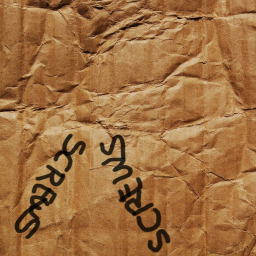 SCREWS
SCREWS